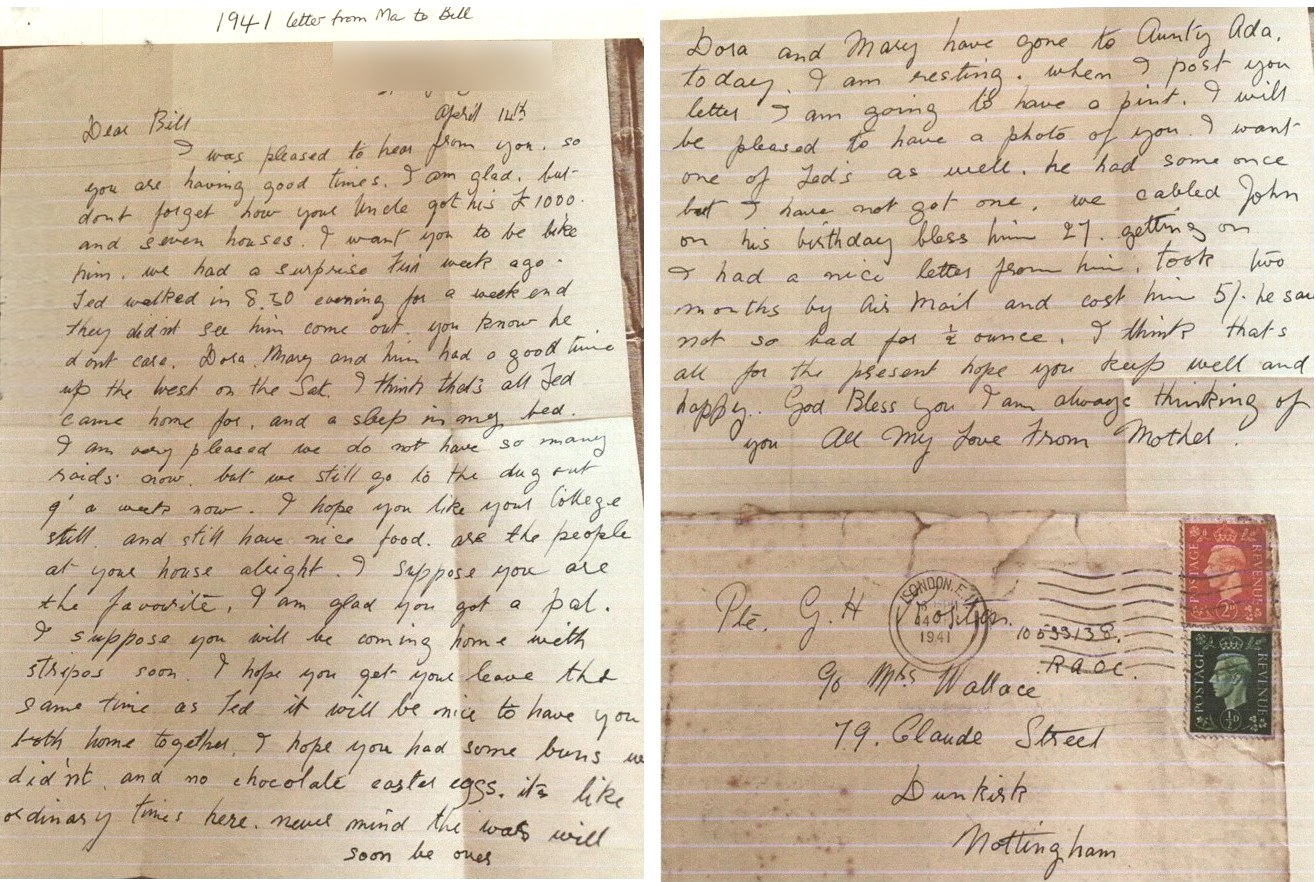 1941 letter from Ma to Bill
April 14th
Dear Bill
I was pleased to hear from you. so
you are having good times. I am glad. but
dont forget how your Uncle got his £1000.
and seven houses. I want you to be like
him. we had a surprise week ago.
Ted walked in 8.30 evening for a week end
they did'nt see him come out. you know he
dont care. Dora. Mary and him had a good time
up the west on the Sat. I think that's all Ted
came home for, and a sleep in my bed.
I am very pleased we do not have so many
raids now. but we still go to the dug out
a week now. I hope you like your College
still. and still have nice food. are the people
at your house alright. I suppose you are
the favourite, I am glad you got a pal.
I suppose you will be coming home with
stripes soon. I hope you get your leave the
same time as Ted it will be nice to have you
both home together, I hope you had some buns we
did'nt. and no chocolate easter eggs. its like
ordinary times here. never mind the war will
soon be over
Dora and Mary have gone to Aunty Ada.
today. I am resting. when I post you
letter I am going to have a pint. I will
be pleased to have a photo of you. I want
one of Ted's as well. he had some once
but I have not got one. we cabled John
on his birthday bless him 27. getting on
I had a nice letter from him. took two
months by Air Mail and cost him 5/- he said
not so bad for ½ ounce. I think that's
all for the present hope you keep well and
happy. God Bless you I am always thinking of
you All My Love From Mother.
POSTAGE REVENUE
2D
LONDON. E.
14
1941
Pte. G. H
10539138.
R.A.O.C.
POSTAGE REVENUE
½D
c/o Mrs Wallace
79. Claude Street
Dunkirk
Nottingham